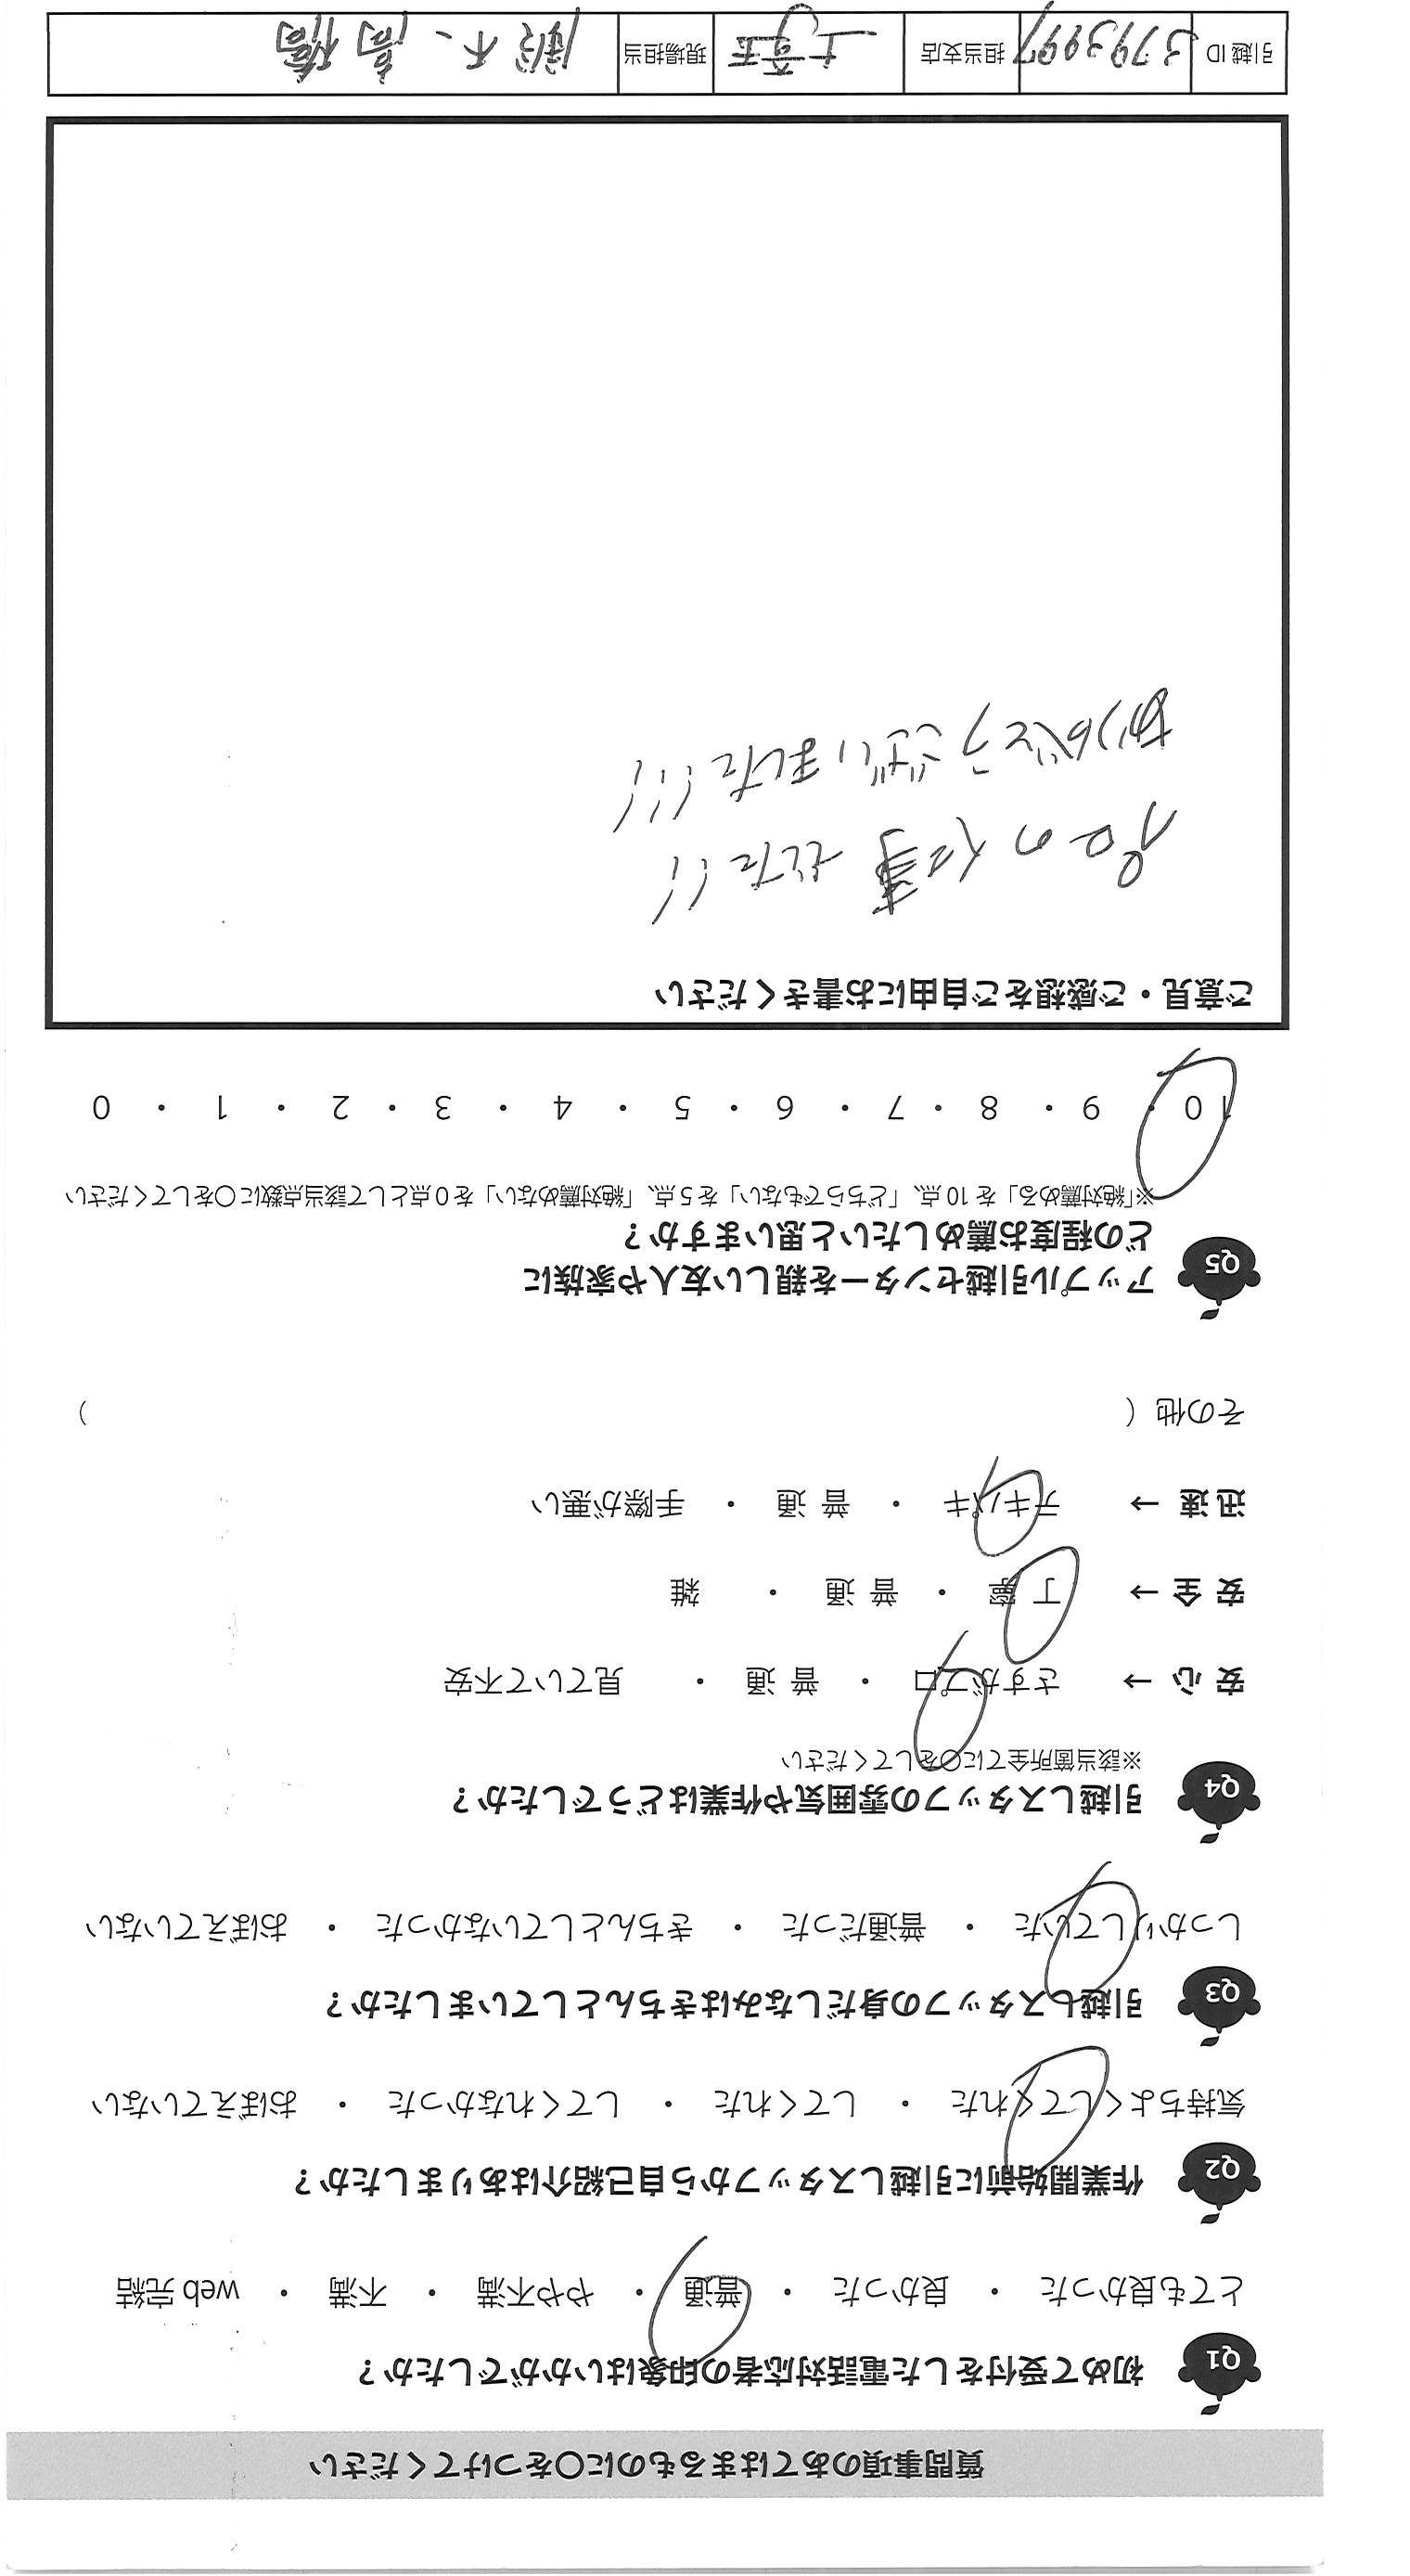 質問事項のあてはまるものに〇をつけてください
Q1 初めて受付をした電話対応者の印象はいかがでしたか？
とても良かった ・ 良かった ・ 普通 ・ やや不満 ・ 不満 ・ web 完結
Q2 作業開始前に引越しスタッフから自己紹介はありましたか？
気持ちよくしてくれた ・ してくれた ・ してくれなかった ・ おぼえていない
Q3 引越しスタッフの身だしなみはきちんとしていましたか？
しっかりしていた ・ 普通だった ・ きちんとしていなかった ・ おぼえていない
Q4 引越しスタッフの雰囲気や作業はどうでしたか？
※該当箇所全てに〇をしてください
安心 → さすがプロ ・ 普通 ・ 見ていて不安
安全 → 丁寧 ・ 普通 ・ 雑
迅速 → テキパキ ・ 普通 ・ 手際が悪い
その他（ ）
Q5 アップル引越センターを親しい友人や家族に
どの程度お薦めしたいと思いますか？
※「絶対薦める」を10点、「どちらでもない」を5点、「絶対薦めない」を0点として該当点数に〇をしてください
10 ・ 9 ・ 8 ・ 7 ・ 6 ・ 5 ・ 4 ・ 3 ・ 2 ・ 1 ・ 0
ご意見・ご感想をご自由にお書きください
プロの仕事でした!!
ありがとうございました!!!
引越ID 3793997 担当支店 現場担当 鈴木、高橋